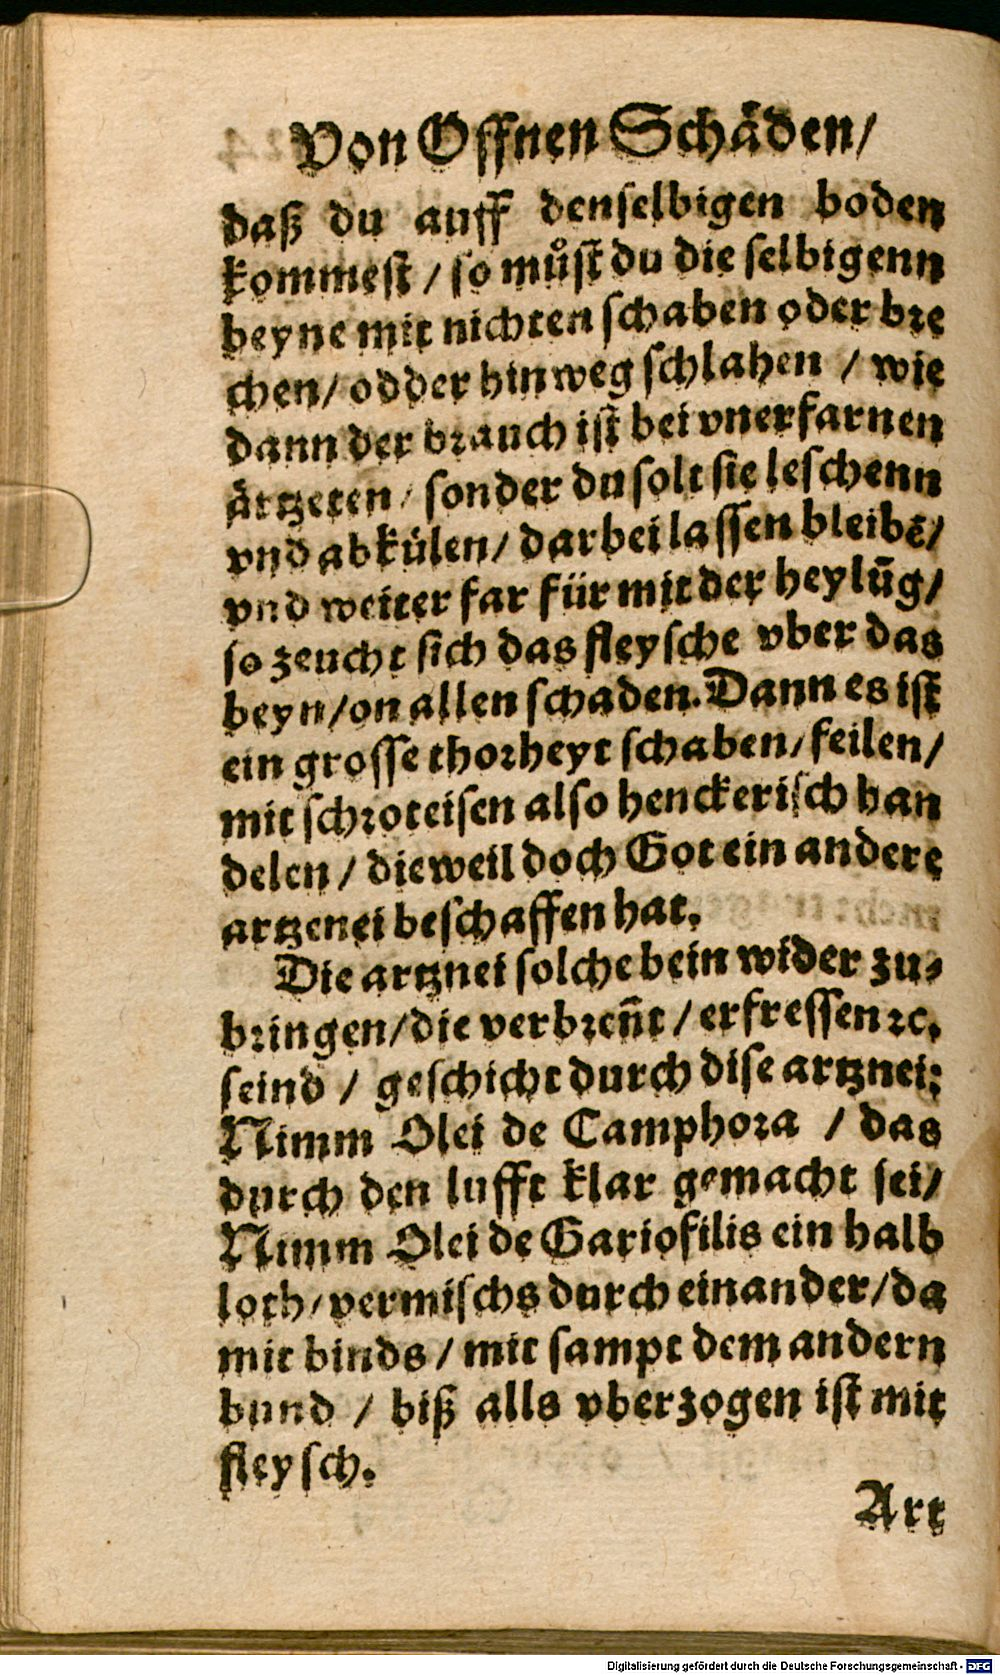 Von Offnen Schäden/
daß du auff denselbigen boden
kommest / so můst du die selbigenn
beyne mit nichten schaben oder bre
chen/ odder hinweg schlahen / wie
dann der brauch ist bei vnerfarnen
ärtzeten / sonder du solt sie leschenn
vnd abkülen/ darbei lassen bleibẽ/
vnd weiter far für mit der heylũg/
so zeucht sich das fleysche vber das
beyn/on allen schaden. Dann es ist
ein grosse thorheyt schaben/ feilen/
mit schroteisen also henckerisch han
delen / dieweil doch Got ein andere
artzenei beschaffen hat.
Die artznei solche bein wider zu⸗
bringen/die verbreñt / erfressen ꝛc.
seind / geschicht durch dise artznei:
Nimm Olei de Camphora / das
durch den lufft klar gemacht sei/
Nimm Olei de Gariofilis ein halb
loth/ vermischs durch einander/da
mit binds / mit sampt dem andern
bund / biß alls vberzogen ist mit
fleysch.
Art
Digitalisierung gefördert durch die Deutsche Forschungsgemeinschaft - DFG